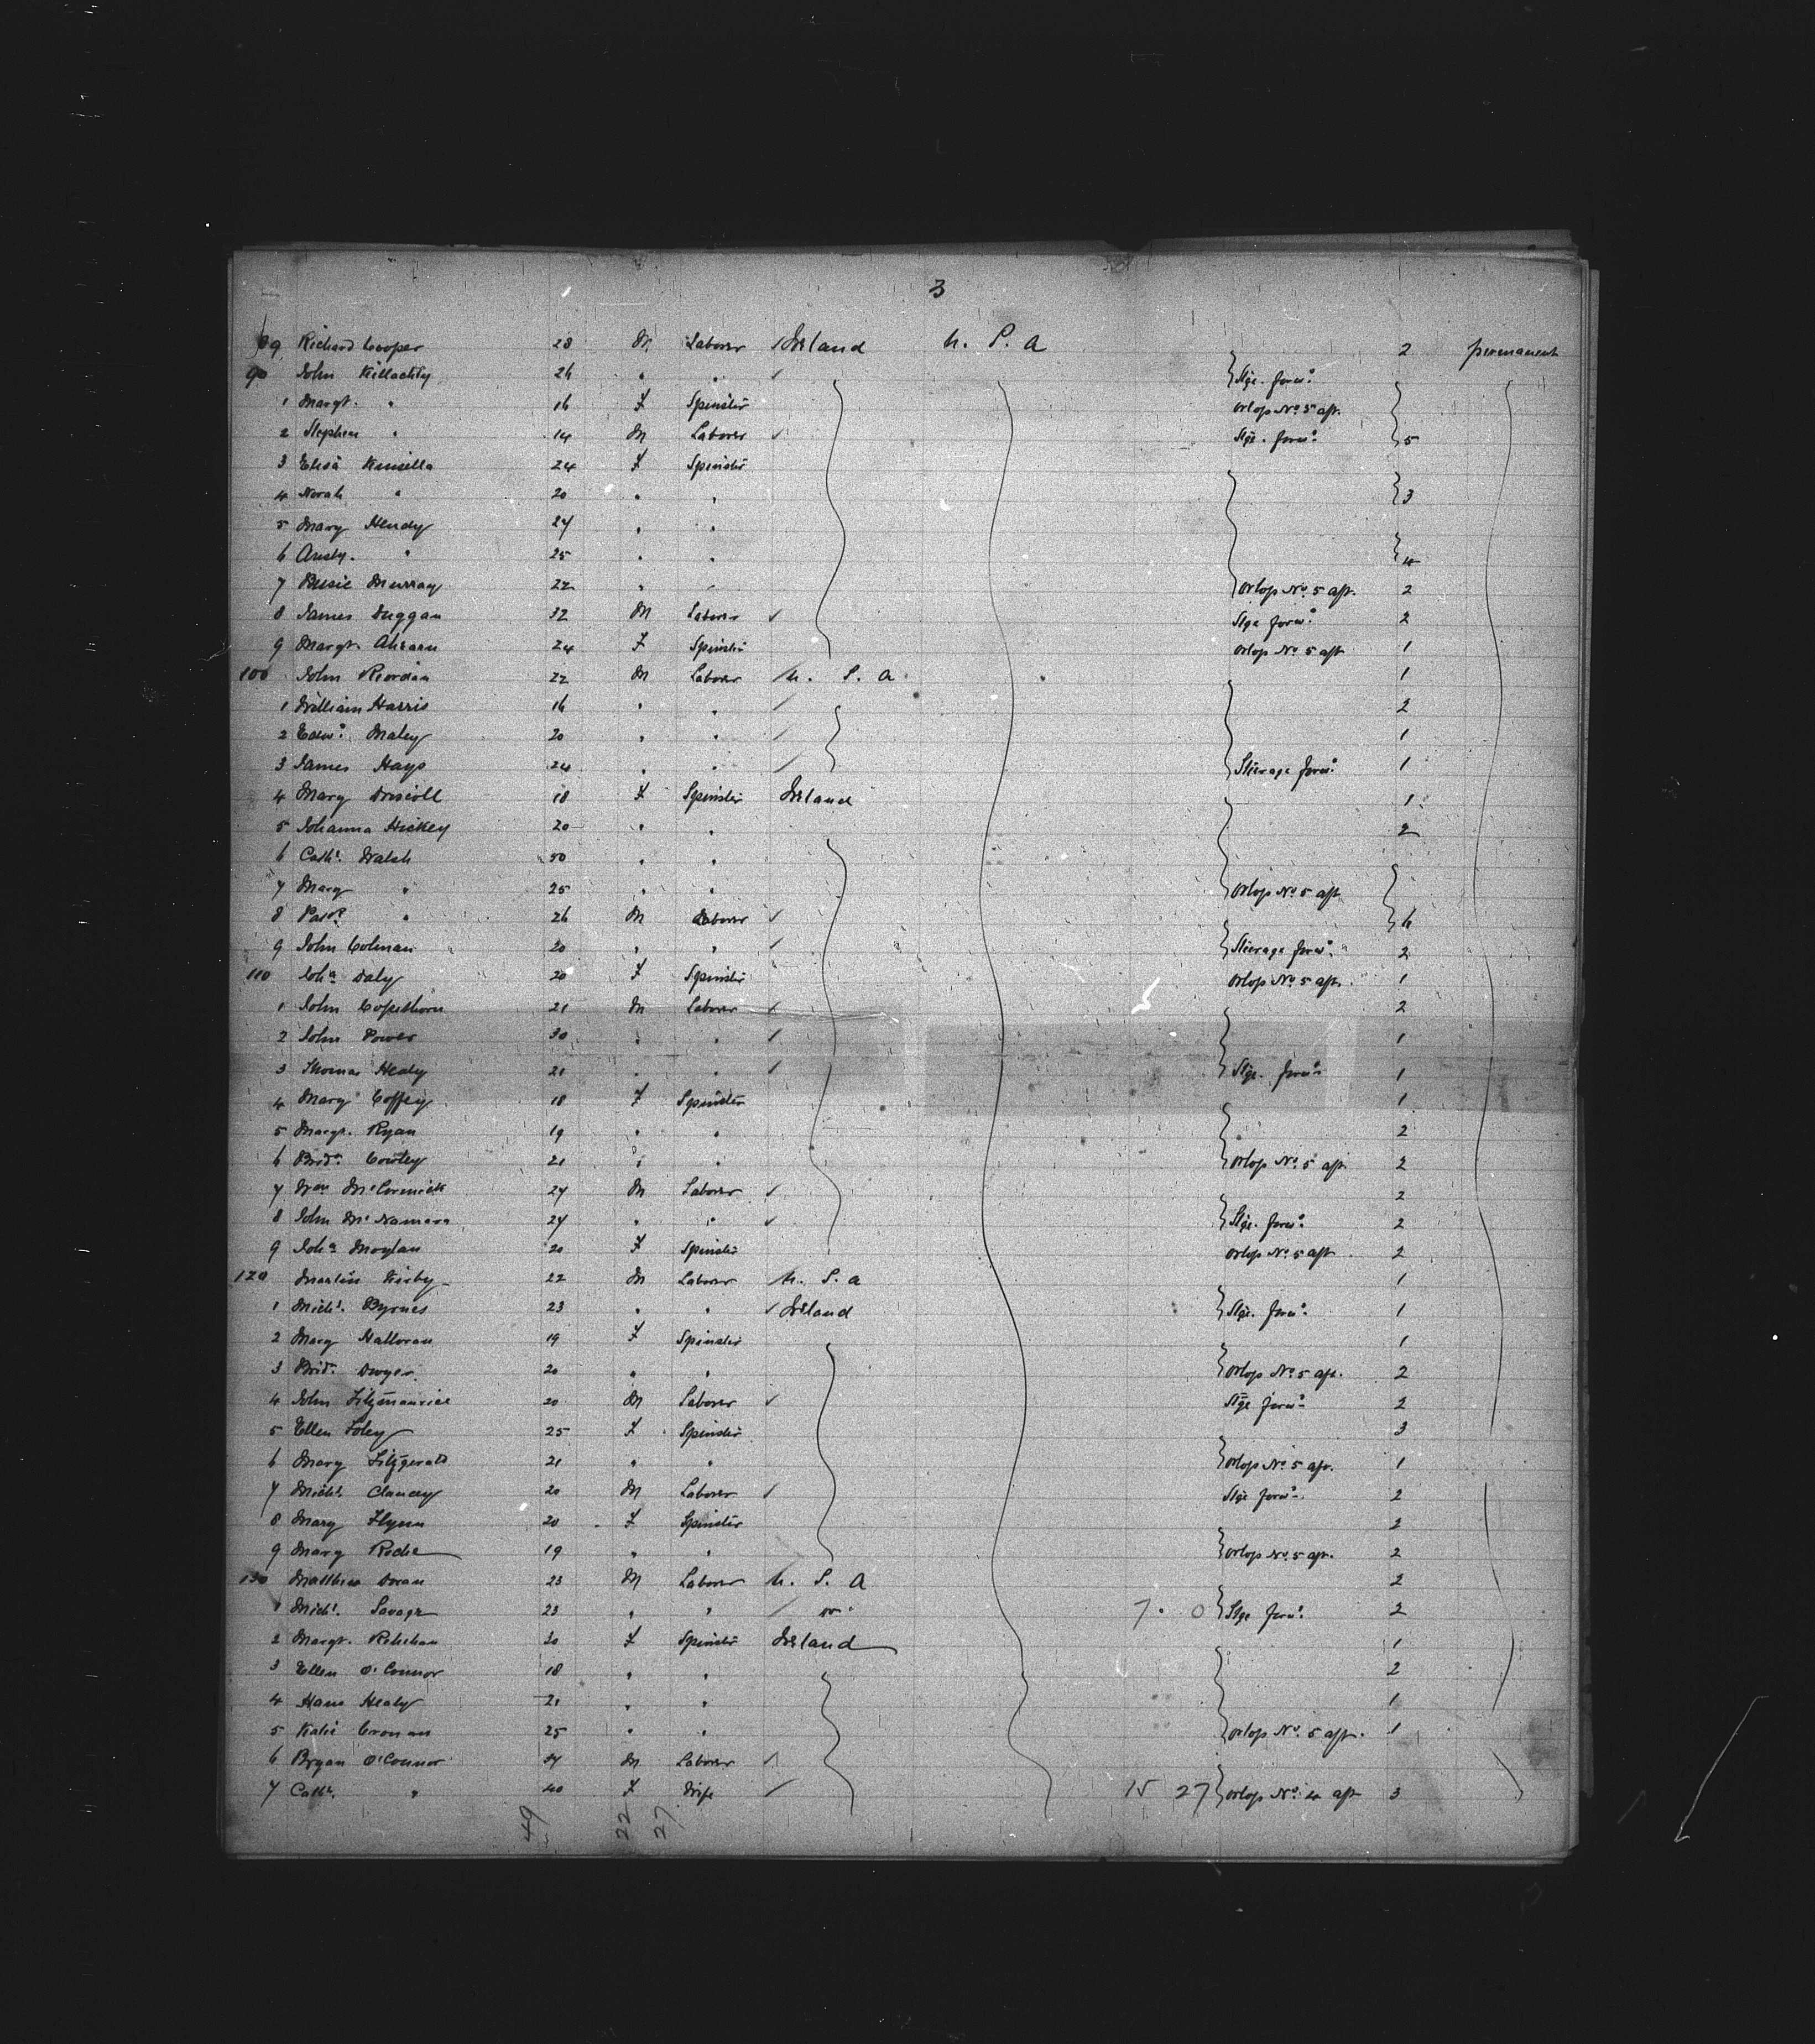 3
89 Richard Cooper 28 M Laborer Ireland U. S. A 2 permanent
90 John Killackly 26 " " Stge. forwd.
1 Margt. " 16 F Spinster Orlop No. 5 aft.
2 Stephen " 14 M Laborer Stge. forwd. 5
3 Eliza Kinsella 24 F Spinster
4 Norah " 20 " " 3
5 Mary Hendy 24 " "
6 Ansty. " 25 " " 4
7 Murray 22 " " Orlop No. 5 aft. 2
8 James Duggan 32 M Laborer Stge forwd. 2
9 Margt. Ahearn 24 F Spinster Orlop No. 5 aft 1
100 John Riordan 22 M Laborer U. S. A 1
1 William Harris 16 " " 2
2 Edwd. Maley 20 " " 1
3 James Hays 24 " " Steerage forwd. 1
4 Mary Driscoll 18 F Spinster Ireland 1
5 Johanna Hickey 20 " " 2
6 Cathe. Walsh 50 " "
7 Mary " 25 " " Orlop No. 5 aft
8 Patk. " 26 M Laborer 6
9 John Colman 20 " " Steerage forwd. 2
110 Joha. Daly 20 F Spinster Orlop No. 5 aft. 1
1 John Copithorn 21 M Laborer 2
2 John Power 30 " " 1
3 Thomas Healy 21 " " Stge. forwd. 1
4 Mary Coffey 18 F Spinster 1
5 Margt. Ryan 19 " " 2
6 Bridt. Cowley 21 " " Orlop No. 5 aft. 2
7 Wm McCormick 24 M Laborer 2
8 John McNamara 24 " " Stge. forwd. 2
9 Joha. Moylan 20 F Spinster Orlop No. 5 aft 2
120 Martin Kirby 22 M Laborer U. S. A 1
1 Michl. Byrnes 23 " " Ireland Stge. forwd. 1
2 Mary Halloran 19 F Spinster 1
3 Bridt. Dwyer 20 " " Orlop No. 5 aft. 2
4 John Fitzmaurice 20 M Laborer Stge forwd. 2
5 Ellen Foley 25 F Spinster 3
6 Mary Fitzgerald 21 " " Orlop No. 5 aft. 1
7 Michl. Clancey 20 M Laborer Stge forwd. 2
8 Mary Flynn 20 F Spinster 2
9 Mary Roche 19 " " Orlop No. 5 aft. 2
130 Matthew Doran 23 M Laborer U. S. A 2
1 Michl. Savage 23 " " do 7 . 0 Stge forwd. 2
2 Margt. Relihan 30 F Spinster Ireland 1
3 Ellen O'Connor 18 " " 2
4 Hana Healy 21 " " 1
5 Katie Cronan 25 " " Orlop No. 5 aft. 1
6 Bryan O'Connor M Laborer
7 Cathe. " 40 F Wife 15 27 Orlop No. 4 aft 3
49 22 27